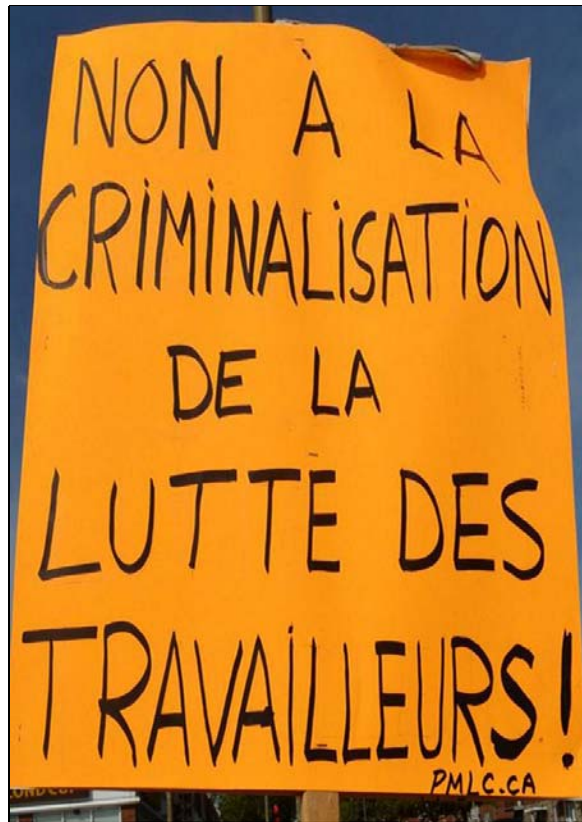 NON À LA
CRIMINALISATION
DE LA
LUTTE DES
TRAVAILLEURS!
PMLC.CA